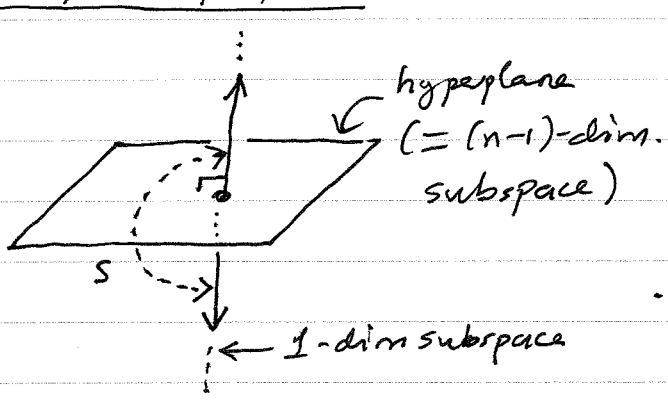 hyperplane
(= (n-1)-dim.
subspace)
S
1-dim subspace